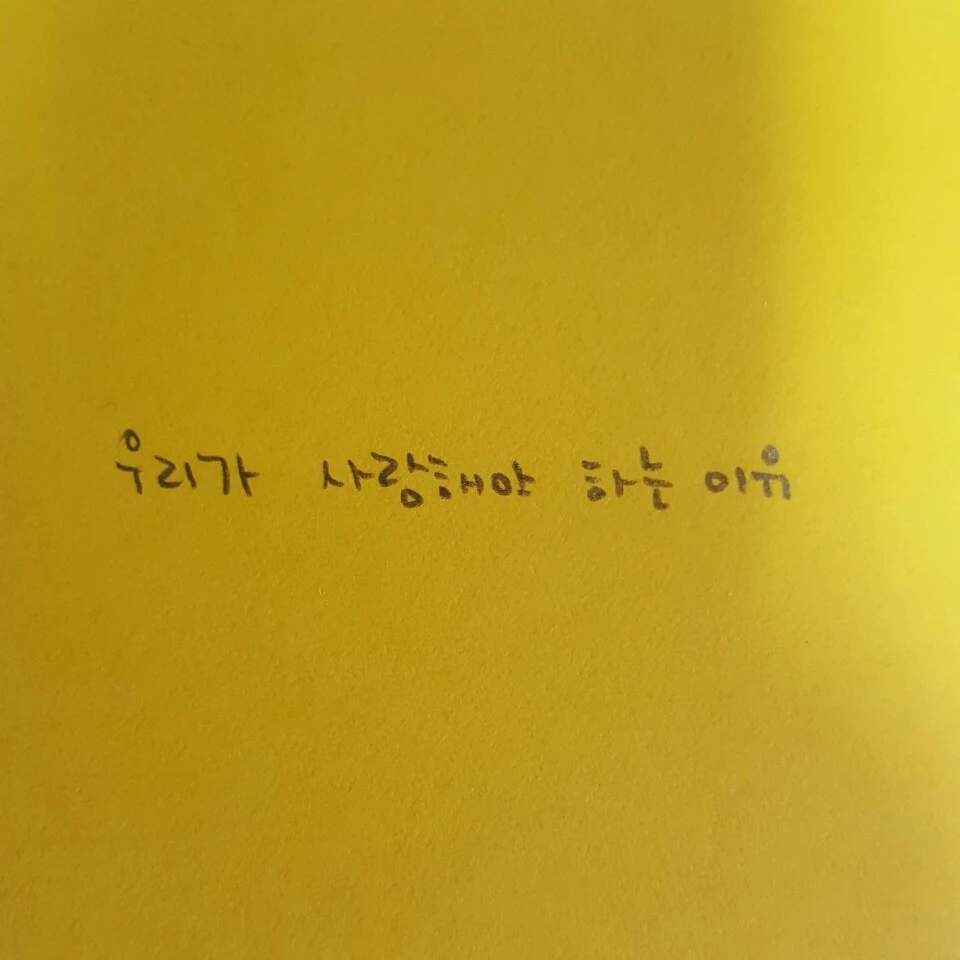 우리가 사랑해야 하는 이유